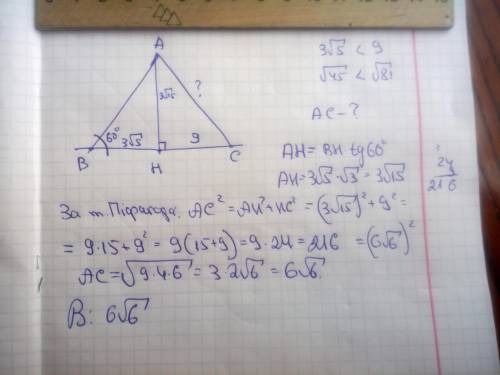 A
3√5 < 9
√45 < √81
3√15
?
AC - ?
60°
3√5
9
B
H
C
AH = BH · tg60°
AH = 3√5 · √3 = 3√15
24
9
216
За т. Піфагора, AC² = AH² + HC² = (3√15)² + 9² =
= 9·15 + 9² = 9(15+9) = 9·24 = 216 = (6√6)²
AC = √9·4·6 = 3·2√6 = 6√6.
В: 6√6